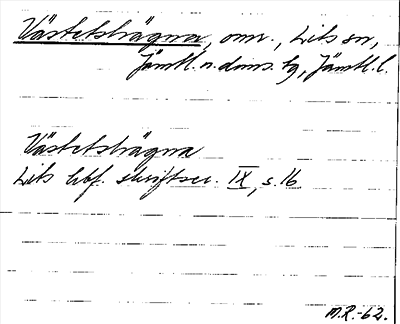 Västetshägna, omr., Lits sn,
Jämtl. n. doms. tg, Jämtl. l.
Västetshägna
Lits hbf. skriftser. IX, s. 16
M.R.-62.